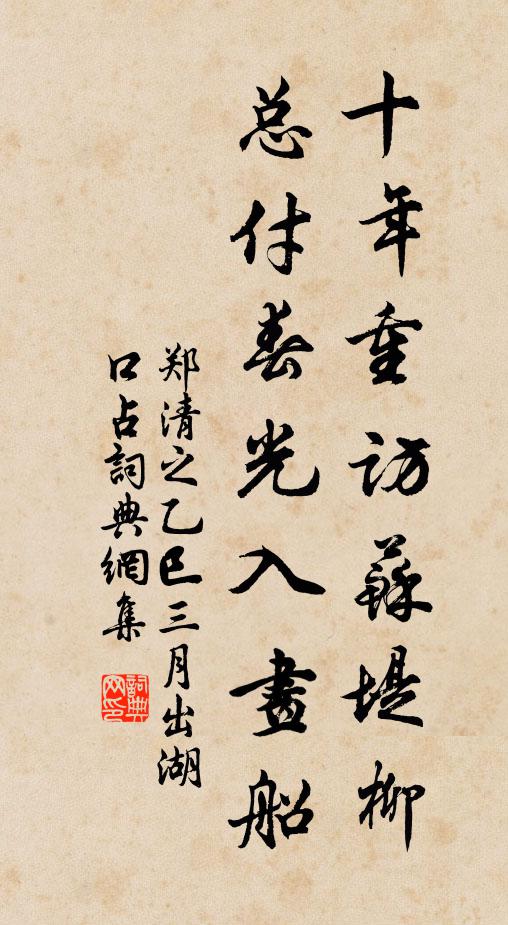 十年重访蘇堤柳
总付春光入畫船
郑清之乙巳三月出湖
口占詞典網集
詞典网印